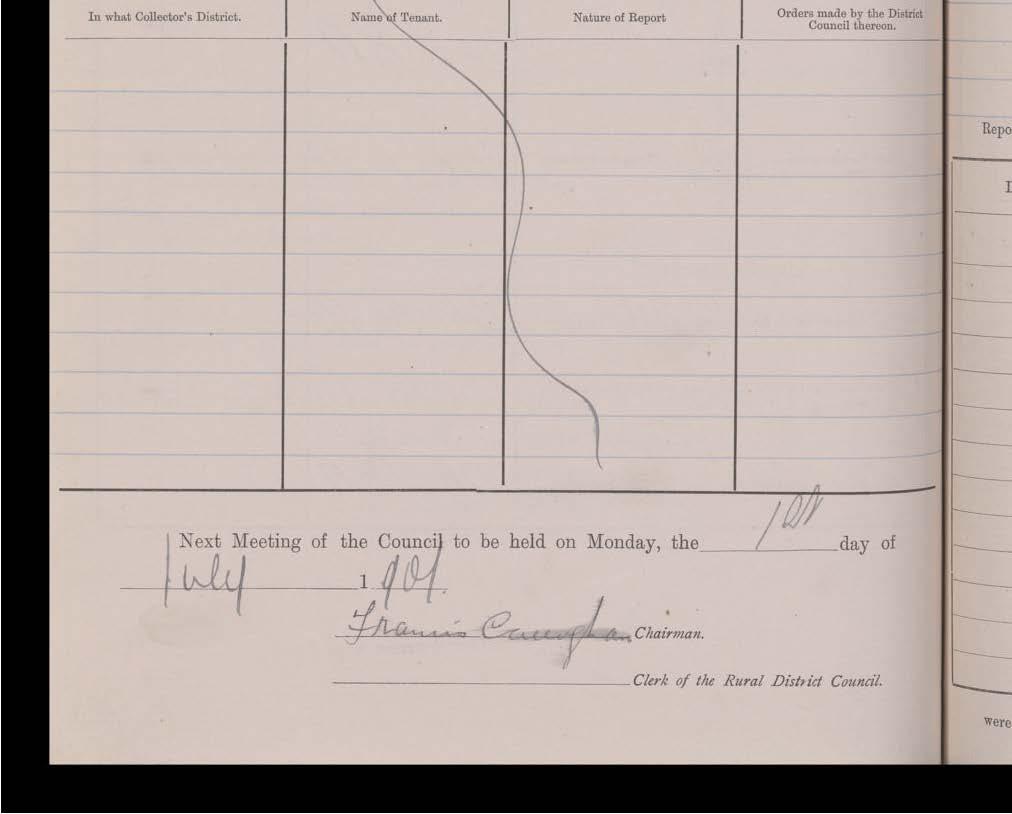 In what Collector's District. Name of Tenant. Nature of Report Orders made by the District Council thereon.
Repo
Next Meeting of the Council to be held on Monday, the 1st day of
July 1901.
Francis Caughan Chairman.
Clerk of the Rural District Council.
were